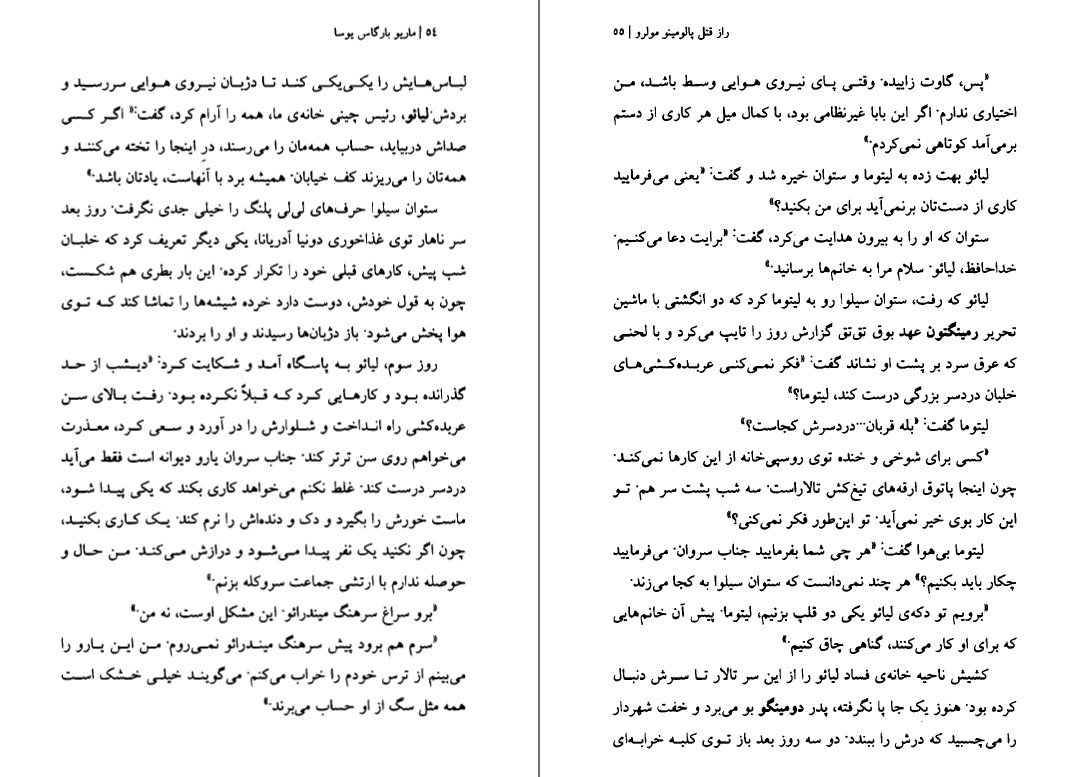 ٥٤ | ماریو بارگاس یوسا
لباس‌هایش را یکی‌یکی کند تا دژبان نیروی هوایی سررسید و
بردش.لیائو، رئیس چینی خانه‌ی ما، همه را آرام کرد، گفت:«اگر کسی
صداش دربیاید، حساب همه‌مان را می‌رسند، در اینجا را تخته می‌کنند و
همه‌تان را می‌ریزند کف خیابان. همیشه برد با آنهاست، یادتان باشد.»
ستوان سیلوا حرف‌های لی‌لی پلنگ را خیلی جدی نگرفت. روز بعد
سر ناهار توی غذاخوری دونیا آدریانا، یکی دیگر تعریف کرد که خلبان
شب پیش، کارهای قبلی خود را تکرار کرده. این بار بطری هم شکست،
چون به قول خودش، دوست دارد خرده شیشه‌ها را تماشا کند که توی
هوا پخش می‌شود. باز دژبان‌ها رسیدند و او را بردند.
روز سوم، لیائو به پاسگاه آمد و شکایت کرد: «دیشب از حد
گذرانده بود و کارهایی کرد که قبلاً نکرده بود. رفت بالای سن
عربده‌کشی راه انداخت و شلوارش را در آورد و سعی کرد، معذرت
می‌خواهم روی سن ترتر کند. جناب سروان یارو دیوانه است فقط می‌آید
دردسر درست کند. غلط نکنم می‌خواهد کاری بکند که یکی پیدا شود،
ماست خورش را بگیرد و دک و دنده‌اش را نرم کند. یک کاری بکنید،
چون اگر نکنید یک نفر پیدا می‌شود و درازش می‌کند. من حال و
حوصله ندارم با ارتشی جماعت سروکله بزنم.»
«برو سراغ سرهنگ میندرائو. این مشکل اوست، نه من.»
«سرم هم برود پیش سرهنگ میندرائو نمی‌روم. من این یارو را
می‌بینم از ترس خودم را خراب می‌کنم. می‌گویند خیلی خشک است
همه مثل سگ از او حساب می‌برند.»
راز قتل پالومینو مولرو | ٥٥
«پس، گاوت زاییده. وقتی پای نیروی هوایی وسط باشد، من
اختیاری ندارم. اگر این بابا غیرنظامی بود، با کمال میل هر کاری از دستم
برمی‌آمد کوتاهی نمی‌کردم.»
لیائو بهت زده به لیتوما و ستوان خیره شد و گفت: «یعنی می‌فرمایید
کاری از دست‌تان برنمی‌آید برای من بکنید؟»
ستوان که او را به بیرون هدایت می‌کرد، گفت: «برایت دعا می‌کنیم.
خداحافظ، لیائو. سلام مرا به خانم‌ها برسانید.»
لیائو که رفت، ستوان سیلوا رو به لیتوما کرد که دو انگشتی با ماشین
تحریر رمینگتون عهد بوق تق‌تق گزارش روز را تایپ می‌کرد و با لحنی
که عرق سرد بر پشت او نشاند گفت: «فکر نمی‌کنی عربده‌کشی‌های
خلبان دردسر بزرگی درست کند، لیتوما؟»
لیتوما گفت: «بله قربان...دردسرش کجاست؟»
«کسی برای شوخی و خنده توی روسپی‌خانه از این کارها نمی‌کند.
چون اینجا پاتوق ارقه‌های تیغ‌کش تالاراست. سه شب پشت سر هم. تو
این کار بوی خیر نمی‌آید. تو این‌طور فکر نمی‌کنی؟»
لیتوما بی‌هوا گفت: «هر چی شما بفرمایید جناب سروان. می‌فرمایید
چکار باید بکنیم؟» هر چند نمی‌دانست که ستوان سیلوا به کجا می‌زند.
«برویم تو دکه‌ی لیائو یکی دو قلپ بزنیم، لیتوما. پیش آن خانم‌هایی
که برای او کار می‌کنند، گناهی چاق کنیم.»
کشیش ناحیه خانه‌ی فساد لیائو را از این سر تالار تا سرش دنبال
کرده بود. هنوز یک جا پا نگرفته، پدر دومینگو بو می‌برد و خفت شهردار
را می‌چسبید که درش را ببندد. دو سه روز بعد باز توی کلبه خرابه‌ای